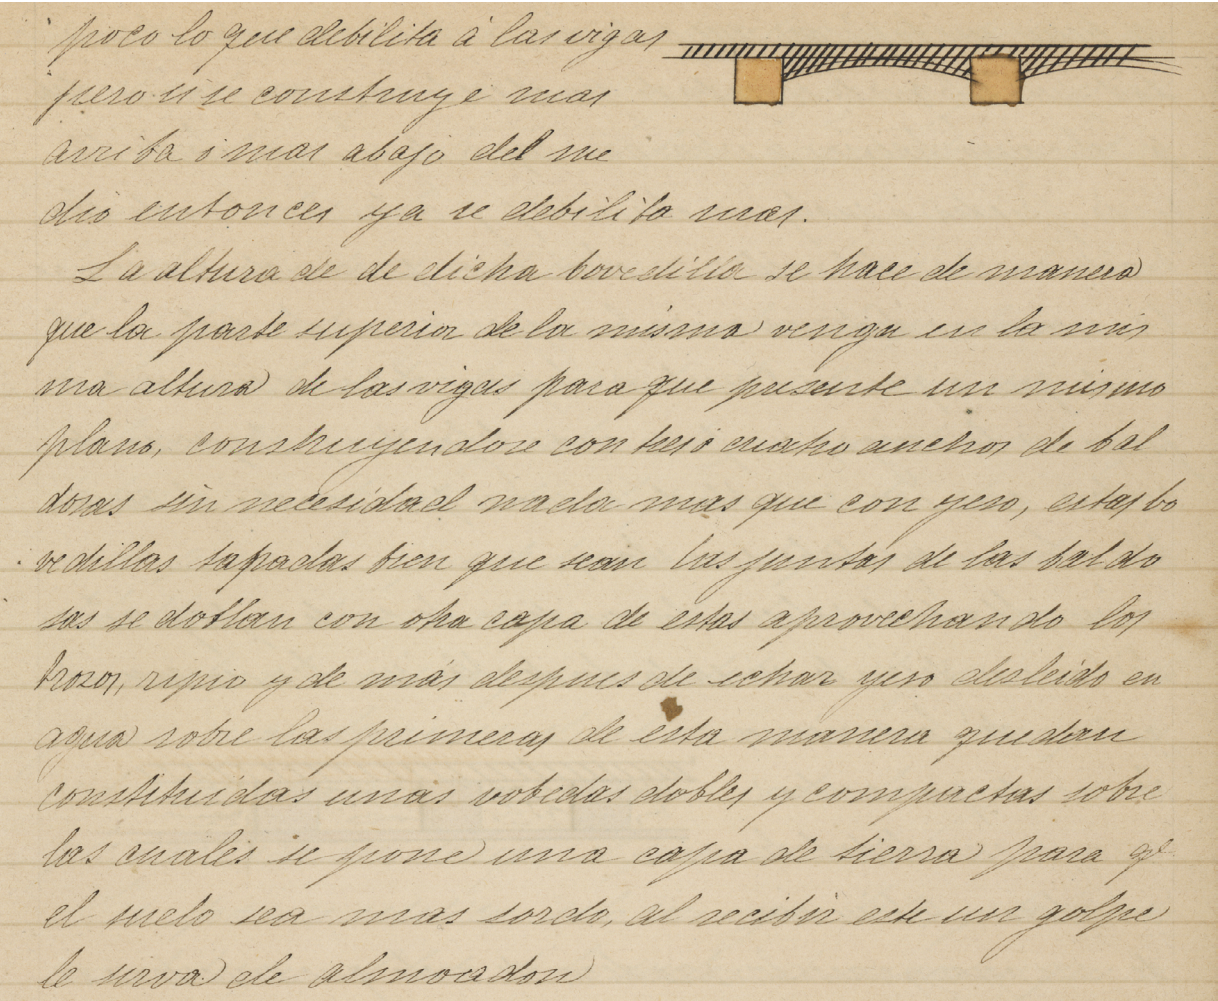 poco lo que debilita á las vigas
pero si se construye mas
arriba ó mas abajo del me
dio entonces ya se debilita mas.
La altura de de dicha bovedilla se hace de manera
que la parte superior de la misma venga en la mis
ma altura de las vigas para que presente un mismo
plano, construyendose con tres ó cuatro anchos de bal
dosas sin necesidad nada mas que con yeso, estas bo
vedillas tapadas bien que sean las juntas de las baldo
sas se doblan con otra capa de estas aprovechando los
trozos, ripio y de más despues de echar yeso desleido en
agua sobre las primeras de esta manera quedan
constituidas unas vobedas dobles y compactas sobre
las cuales se pone una capa de tierra para qe
el suelo sea mas sordo, al recibir este un golpe
le sirva de almoadon